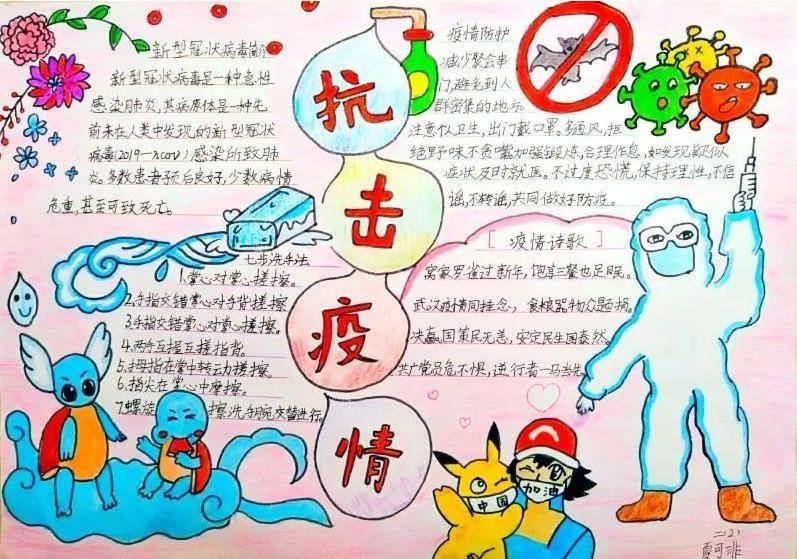 抗
击
疫
情
新型冠状病毒简介
新型冠状病毒是一种急性
感染肺炎,其病原体是一种先
前未在人类中发现的新型冠状
病毒(2019-ncov)感染所致肺
炎。多数患者预后良好,少数病情
危重,甚至可致死亡。
疫情防护
减少聚会串
门,避免到人
群密集的地方
注意个人卫生,出门戴口罩。多通风,拒
绝野味不贪嘴加强锻炼,合理作息,如发现疑似
症状及时就医。不过度恐慌,保持理性,不信
谣,不转谣,共同做好防疫。
七步洗手法
1.掌心对掌心搓擦。
2.手指交错掌心对手背搓擦
3.手指交错掌心对掌心搓擦。
4.两手互握互搓指背。
5.拇指在掌中转动搓擦。
6.指尖在掌心中摩擦。
7.螺旋 擦洗手腕交替进行。
[ 疫情诗歌 ]
窝家罗雀过新年,饱享三餐也足眠。
武汉疫情同挂念,食粮器物众题捐。
决赢国策民无恙,安定民生国泰然。
共产党员危不惧,逆行者一马当先
中国
加油
二(2)
夏可非